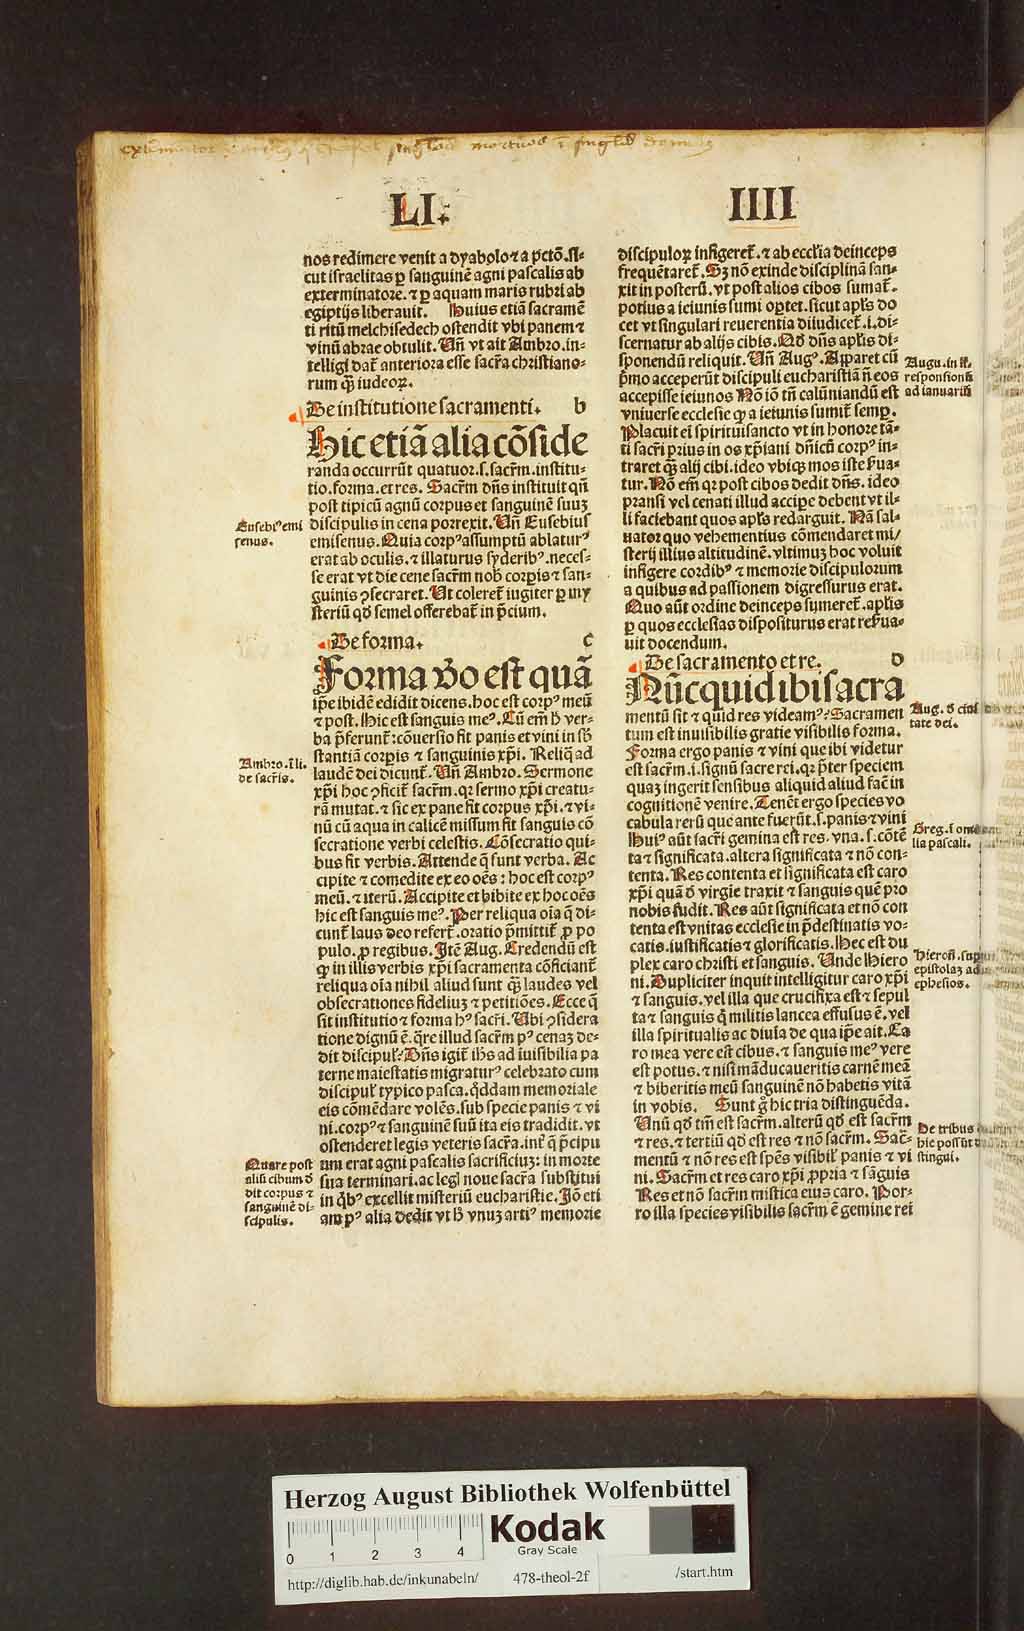 LI. IIII
nos redimere venit a dyabolo ⁊ a pctō. si-
cut israelitas ꝑ sanguinē agni pascalis ab
exterminatore. ⁊ ꝑ aquam maris rubri ab
egiptijs liberauit. Huius etiā sacramē
ti ritū melchisedech ostendit vbi panem ⁊
vinū abrae obtulit. Un̄ vt ait Ambro. in-
telligi dat̄ anteriora esse sacr̄a christiano-
rum qȝ iudeoꝝ.
De institutione sacramenti. b
Hic etiā alia cōside
randa occurrūt quatuor. s. sacr̄m. institu-
tio. forma. et res. Sacr̄m dn̄s instituit qn̄
post tipicū agnū corpus et sanguinē suuȝ
discipulis in cena porrexit. Un̄ Eusebius
emisenus. Quia corpꝰ assumptū ablaturꝰ
erat ab oculis. ⁊ illaturus syderibꝰ. neces-
se erat vt die cene sacr̄m nob̄ corpis ⁊ san-
guinis ꝯsecraret. Ut coleret̄ iugiter ꝑ my
steriū qd̄ semel offerebat̄ in p̄cium.
Eusebiꝰ emi
senus.
De forma. c
Forma v̄o est quā
ip̄e ibidē edidit dicens. hoc est corpꝰ meū
⁊ post. Hic est sanguis meꝰ. Cū em̄ h̄ ver-
ba p̄ferunt̄: cōuersio fit panis et vini in sb̄
stantiā corpis ⁊ sanguinis xp̄i. Reliq̄ ad
laudē dei dicunt̄. Un̄ Ambro. Sermone
xp̄i hoc ꝯficit̄ sacr̄m. qꝛ sermo xp̄i creatu-
rā mutat. ⁊ sic ex pane fit corpus xp̄i. ⁊ vi-
nū cū aqua in calicē missum fit sanguis cō
secratione verbi celestis. Cōsecratio qui-
bus fit verbis. Attende q̄ sunt verba. Ac
cipite ⁊ comedite ex eo oēs: hoc est corpꝰ
meū. ⁊ iterū. Accipite et bibite ex hoc oēs
hic est sanguis meꝰ. Per reliqua oīa q̄ di-
cunt̄ laus deo refert̄. oratio p̄mittit̄ ꝓ po
pulo. ꝓ regibus. Itē Aug. Credendū est
ꝙ in illis verbis xp̄i sacramenta cōficiant̄
reliqua oīa nihil aliud sunt qȝ laudes vel
obsecrationes fideliuȝ ⁊ petitiōes. Ecce q̄
sit institutio ⁊ forma hꝰ sacr̄i. Ubi ꝯsidera
tione dignū ē. q̄re illud sacr̄m pꝰ cenaȝ de-
dit discipul̄? Dn̄s igit̄ ih̄s ad iuisibilia pa
terne maiestatis migraturꝰ celebrato cum
discipul̄ typico pasca. q̄ddam memoriale
eis cōmēdare volēs. sub specie panis ⁊ vi
ni. corpꝰ ⁊ sanguinē suū ita eis tradidit. vt
ostenderet legis veteris sacr̄a. int̄ q̄ p̄cipu
um erat agni pascalis sacrificiuȝ: in morte
sua terminari. ac legi noue sacr̄a substitui
in qb̄ꝰ excellit misteriū eucharistie. Iō eti
am pꝰ alia dedit vt h̄ vnuȝ artiꝰ memorie
Ambro. ī li.
de sacr̄is.
Quare post
aliū cibum d̄
dit corpus ⁊
sanguinē di-
scipulis.
discipuloꝝ infigeret̄. ⁊ ab eccl̄ia deinceps
frequētaret̄. Sȝ nō exinde disciplinā san-
xit in posterū. vt post alios cibos sumat̄.
potius a ieiunis sumi oꝑtet. sicut apl̄s do
cet vt singulari reuerentia diiudicet̄. i. di-
scernatur ab alijs cibis. Qd̄ dn̄s apl̄is di-
sponendū reliquit. Un̄ Augꝰ. Apparet cū
p̄mo acceperūt discipuli eucharistiā n̄ eos
accepisse ieiunos Nō iō tn̄ calūniandū est
vniuerse ecclesie ꝙ a ieiunis sumit̄ semꝑ.
Placuit ei spirituisancto vt in honore tā-
ti sacr̄i prius in os xp̄iani dn̄icū corpꝰ in-
traret qȝ alij cibi. ideo vbiqȝ mos iste ẜua-
tur. Nō em̄ qꝛ post cibos dedit dn̄s. ideo
pransi vel cenati illud accipe debent vt il-
li faciebant quos apl̄s redarguit. Nā sal-
uator quo vehementius cōmendaret mi/
sterij illius altitudinē. vltimuȝ hoc voluit
infigere cordibꝰ ⁊ memorie discipulorum
a quibus ad passionem digressurus erat.
Quo aūt ordine deinceps sumeret̄. apl̄is
ꝑ quos ecclesias dispositurus erat reẜua-
uit docendum.
Augu. in li.
responsionū
ad ianuariū
De sacramento et re. D
Nūc quid ibi sacra
mentū sit ⁊ quid res videamꝰ: Sacramen
tum est inuisibilis gratie visibilis forma.
Forma ergo panis ⁊ vini que ibi videtur
est sacr̄m. i. signū sacre rei. qꝛ p̄ter speciem
quaȝ ingerit sensibus aliquid aliud fac̄ in
cognitionē venire. Tenēt ergo species vo
cabula rerū que ante fuerūt. s. panis ⁊ vini
Huiꝰ aūt sacr̄i gemina est res. vna. s. cōtē
ta ⁊ significata. altera significata ⁊ nō con-
tenta. Res contenta et significata est caro
xp̄i quā d̄ virgīe traxit ⁊ sanguis quē pro
nobis fudit. Res aūt significata et nō con
tenta est vnitas ecclesie in p̄destinatis vo-
catis. iustificatis ⁊ glorificatis. Hec est du
plex caro christi et sanguis. Unde Hiero
ni. Dupliciter inquit intelligitur caro xp̄i
⁊ sanguis. vel illa que crucifixa est ⁊ sepul
ta ⁊ sanguis q̄ militis lancea effusus ē. vel
illa spiritualis ac diuīa de qua ip̄e ait. Ca
ro mea vere est cibus. ⁊ sanguis meꝰ vere
est potus. ⁊ nisi māducaueritis carnē meā
⁊ biberitis meū sanguinē nō habetis vitā
in vobis. Sunt g̊ hic tria distinguēda.
Unū qd̄ tm̄ est sacr̄m. alterū qd̄ est sacr̄m
⁊ res. ⁊ tertiū qd̄ est res ⁊ nō sacr̄m. Sac̄-
mentū ⁊ nō res est spēs visibil̄ panis ⁊ vi
ni. Sacr̄m et res caro xp̄i ꝓpria ⁊ sāguis
Res et nō sacr̄m mistica eius caro. Por-
ro illa species visibilis sacr̄m ē gemine rei
Aug. d̄ ciui
tate dei.
Greg. ī ome
lia pascali.
Hieron̄. sup
epistolaȝ ad
ephesios.
De tribus
hic possūt d
stingui.
Herzog August Bibliothek Wolfenbüttel
Kodak
Gray Scale
0 1 2 3 4
http://diglib.hab.de/inkunabeln/ 478-theol-2f /start.htm